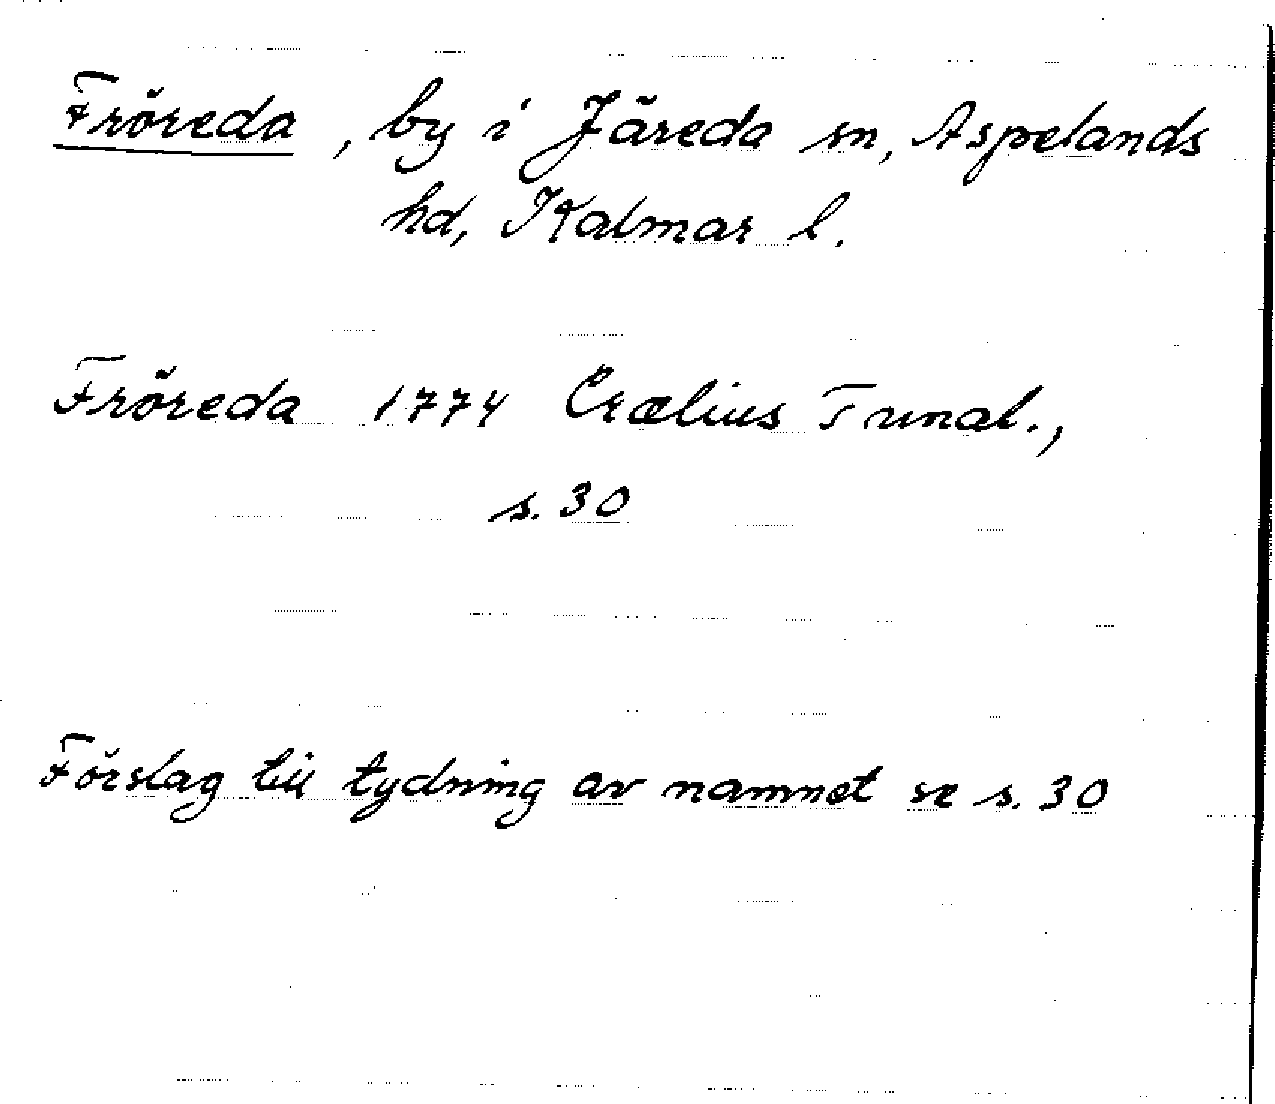 Fröreda, by i Järeda sn, Aspelands
hd, Kalmar l.
Fröreda 1774 Crælius Tunal.,
s. 30
Förslag till tydning av namnet se s. 30